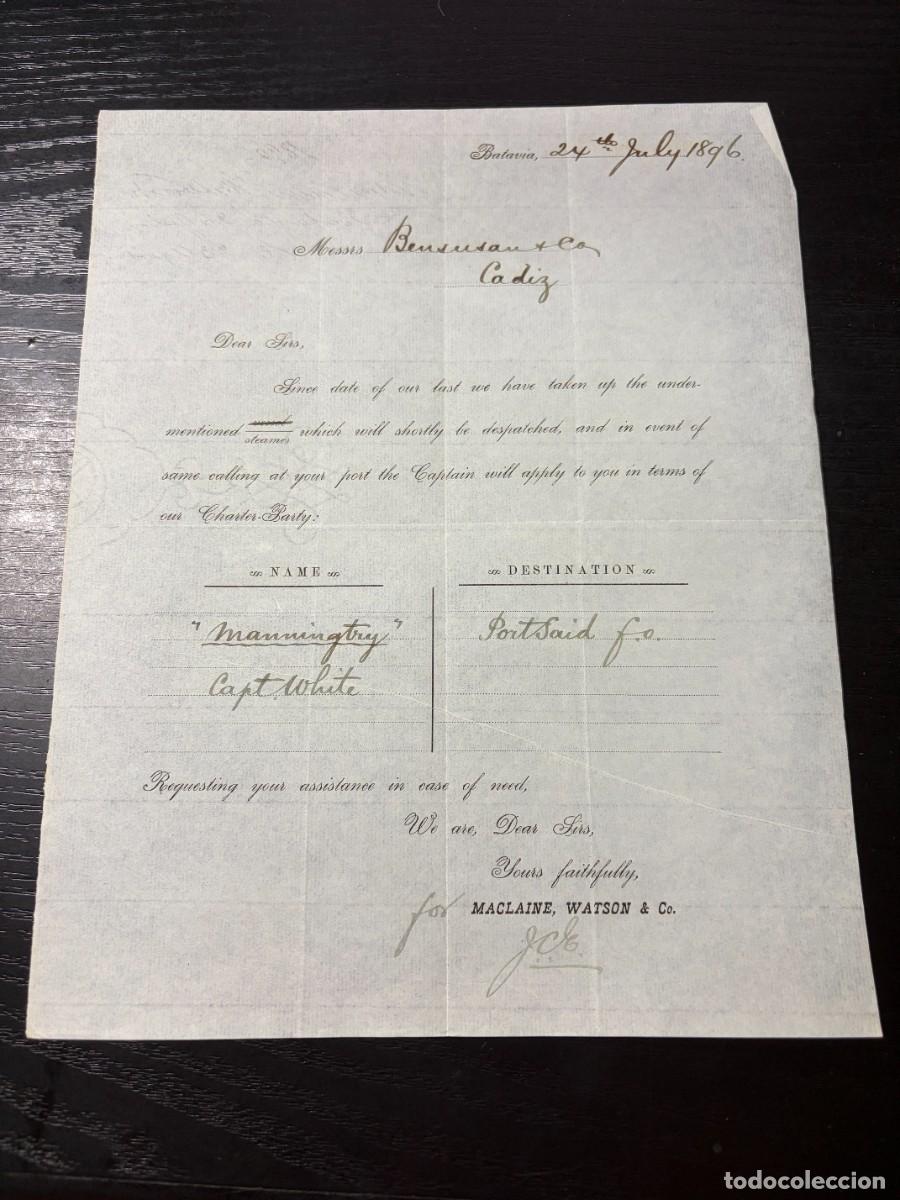 Batavia, 24th July 1896.
Messrs Bensusan & Co
Cadiz
Dear Sirs,
Since date of our last we have taken up the under-
mentioned vessel
steamer which will shortly be despatched, and in event of
same calling at your port the Captain will apply to you in terms of
our Charter-Party:
NAME
DESTINATION
"Manningtry"
Port Said f.o.
Capt White
Requesting your assistance in case of need,
We are, Dear Sirs,
Yours faithfully,
for MACLAINE, WATSON & Co.
todocoleccion